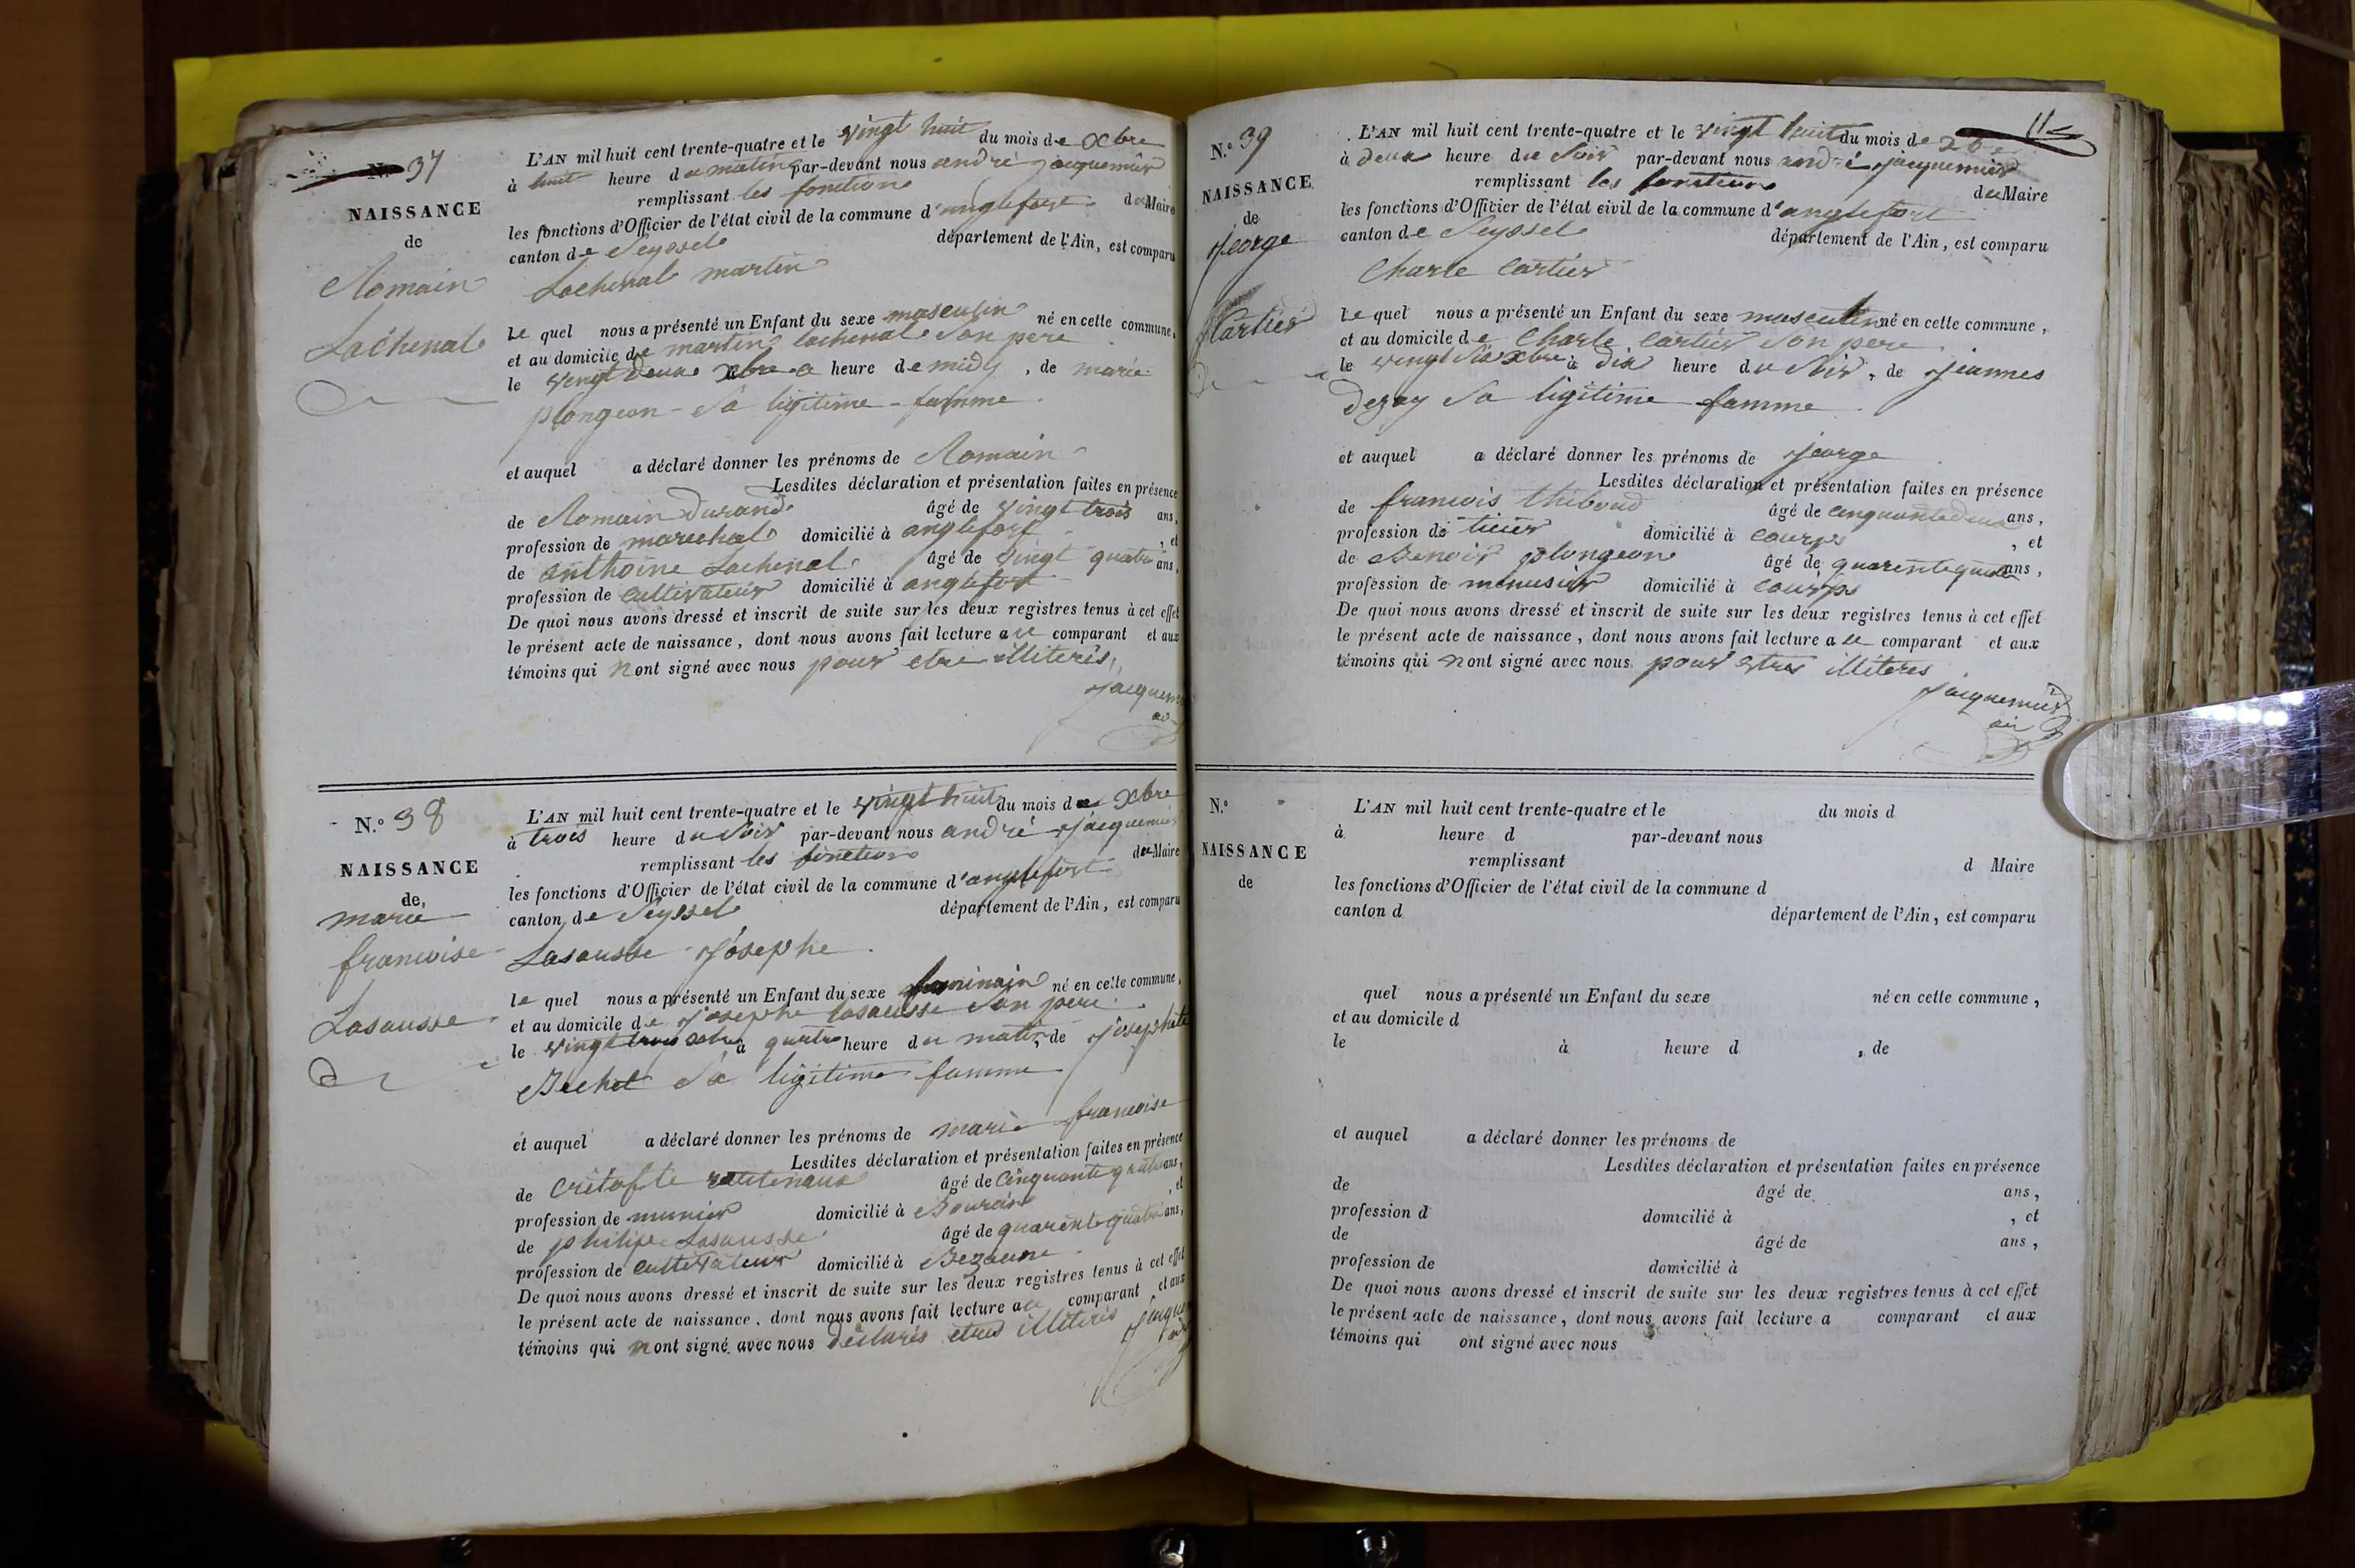 N.º 37
NAISSANCE
de
Romain
Lachenal
L'AN mil huit cent trente-quatre et le vingt huit du mois de Xbre
à huit heure du matin par-devant nous andré jacquemier
remplissant les fonction du Maire
les fonctions d'Officier de l'état civil de la commune d'anglefort
canton de Seyssel département de l'Ain, est comparu
Lachenal martin
le quel nous a présenté un Enfant du sexe masculin né en cette commune,
et au domicile de martin lachenal son pere
le vingt deux xbre a heure de midy, de marie
plongeon sa ligitime famme
et auquel a déclaré donner les prénoms de Romain
Lesdites déclaration et présentation faites en présence
de Romain Durand âgé de vingt trois ans,
profession de marechal domicilié à anglefort, et
de anthoine Lachenal âgé de vingt quatre ans,
profession de cultivateur domicilié à anglefort
De quoi nous avons dressé et inscrit de suite sur les deux registres tenus à cet effet
le présent acte de naissance, dont nous avons fait lecture au comparant et aux
témoins qui nont signé avec nous pour etre illiterés
jacquem
N.º 38
NAISSANCE
de
marie
francoise
Lasausse
L'AN mil huit cent trente-quatre et le vingt huit du mois de Xbre
à trois heure du soir par-devant nous andré jacquemier
remplissant les fonction du Maire
les fonctions d'Officier de l'état civil de la commune d'anglefort
canton de Seyssel département de l'Ain, est comparu
Lasausse Josephe
le quel nous a présenté un Enfant du sexe feminain né en cette commune,
et au domicile de josephe lasausse son pere
le vingt trois xbre a quatre heure du matin, de josephte
Bechet sa ligitime famme
et auquel a déclaré donner les prénoms de marie francoise
Lesdites déclaration et présentation faites en présence
de âgé de cinquante quatre ans,
profession de munier domicilié à, et
de philipe Lasausse âgé de quarente quatre ans,
profession de cultivateur domicilié à Bezonne
De quoi nous avons dressé et inscrit de suite sur les deux registres tenus à cet effet
le présent acte de naissance, dont nous avons fait lecture au comparant et aux
témoins qui nont signé avec nous déclarés illiterés
N.º 39
NAISSANCE
de
jeorge
Cartier
L'AN mil huit cent trente-quatre et le vingt huit du mois de
à deux heure du soir par-devant nous andré jacquemier
remplissant les fonction du Maire
les fonctions d'Officier de l'état civil de la commune d'anglefort
canton de Seyssel département de l'Ain, est comparu
Charle Cartier
le quel nous a présenté un Enfant du sexe masculin né en cette commune,
et au domicile de Charle Cartier son pere
le vingt six xbre à dix heure du soir, de jeannes
Dezay sa ligitime famme
et auquel a déclaré donner les prénoms de jeorge
Lesdites déclaration et présentation faites en présence
de francois thiboud âgé de cinquante deux ans,
profession de domicilié à, et
de Benoit plongeon âgé de quarente quatre ans,
profession de menusier domicilié à
De quoi nous avons dressé et inscrit de suite sur les deux registres tenus à cet effet
le présent acte de naissance, dont nous avons fait lecture au comparant et aux
témoins qui nont signé avec nous pour illiteres
jacquemier
N.º
NAISSANCE
de
L'AN mil huit cent trente-quatre et le du mois d
à heure d par-devant nous
remplissant d Maire
les fonctions d'Officier de l'état civil de la commune d
canton d département de l'Ain, est comparu
quel nous a présenté un Enfant du sexe né en cette commune,
et au domicile d
le à heure d, de
et auquel a déclaré donner les prénoms de
Lesdites déclaration et présentation faites en présence
de âgé de ans,
profession d domicilié à, et
de âgé de ans,
profession de domicilié à
De quoi nous avons dressé et inscrit de suite sur les deux registres tenus à cet effet
le présent acte de naissance, dont nous avons fait lecture a comparant et aux
témoins qui ont signé avec nous